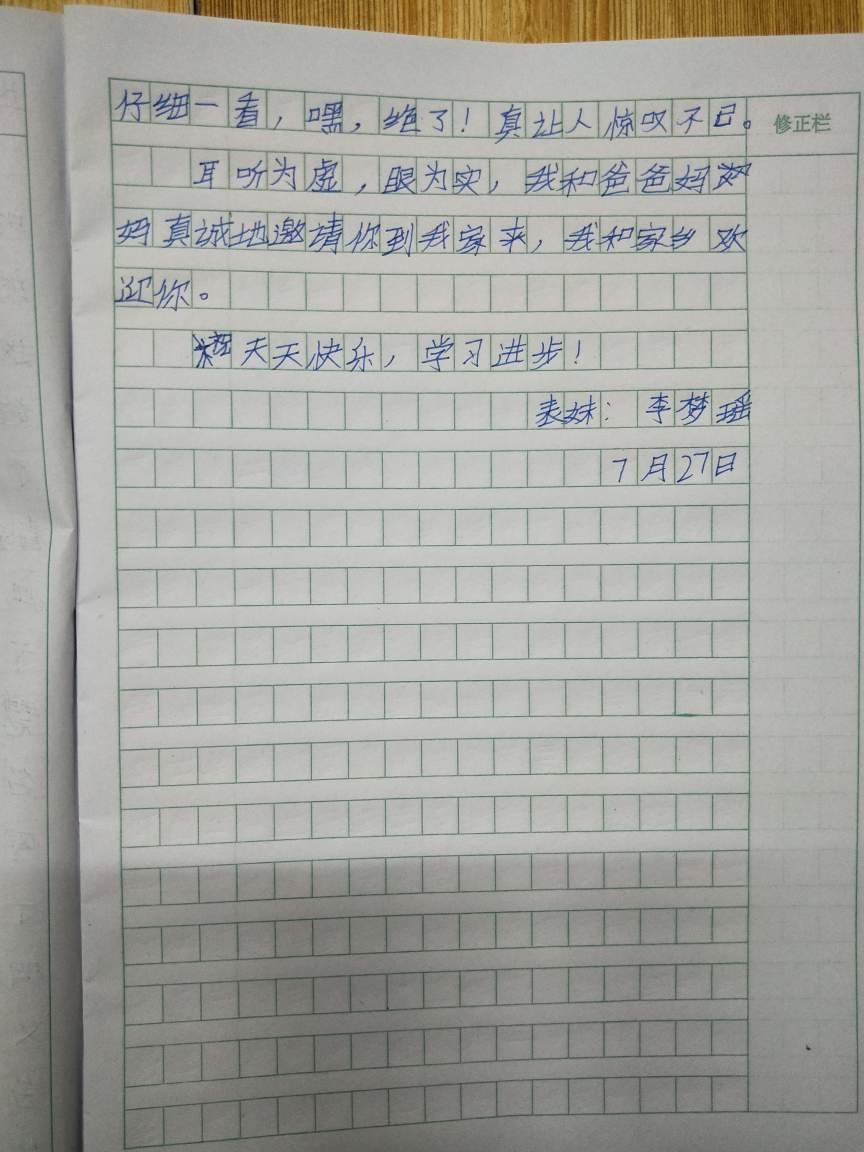 仔细一看，嘿，绝了！真让人惊叹不已。
修正栏
耳听为虚，眼为实，我和爸爸妈
妈真诚地邀请你到我家来，我和家乡欢
迎你。
天天快乐，学习进步！
表妹：李梦瑶
7月27日